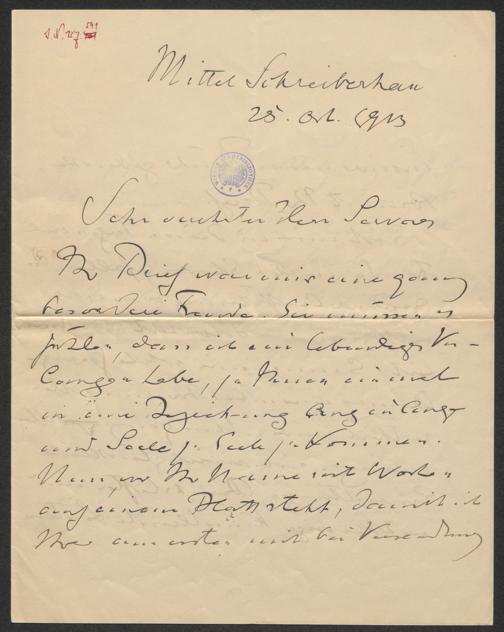 Mittel Schreiberhau
25. Okt. 1913
Sehr verehrter Herr Servaes
Ihr Brief war mir eine ganz
besondere Freude. Sie müssen es
fühlen, dass ich ein lebendiges Ver-
langen habe, zu Ihnen einmal
in eine Beziehung Aug in Auge
und Seele zu Seele zu kommen.
Wenn Ihr Name mit Worten
auf einem Blatt steht, damit ich
Ihre am ersten mit bei